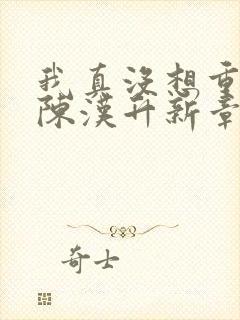 我真没想重
陳漢升新章
奇士